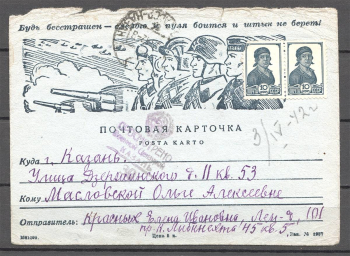 Будь бесстрашен — и пуля боится и штык не берет!
10 10
ПОЧТОВАЯ КАРТОЧКА
POSTA KARTO
3/IV-42г
Куда г. Казань.
Улица Дзержинского д. 11 кв. 53
Кому Масловской Ольге Алексеевне
Отправитель: Красных Елена Ивановна, Лен-д, 101
пр. К. Либкнехта 45 кв. 5
Цена 5 к.